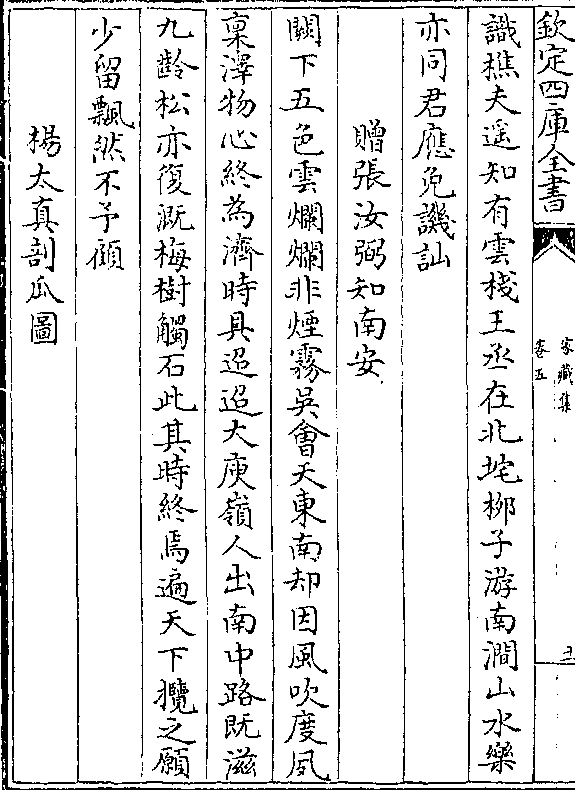 欽定四庫全書
家藏集
卷五
十一
識樵夫遥知有雲棧王丞在北垞栁子游南澗山水樂
亦同君應免譏訕
贈張汝弼知南安
闕下五色雲爛爛非煙霧吳㑹天東南却因風吹度夙
稟澤物心終為濟時具迢迢大庾嶺人出南中路既滋
九齡松亦復溉梅樹觸石此其時終焉遍天下攬之願
少留飄然不予顧
楊太真剖瓜圖